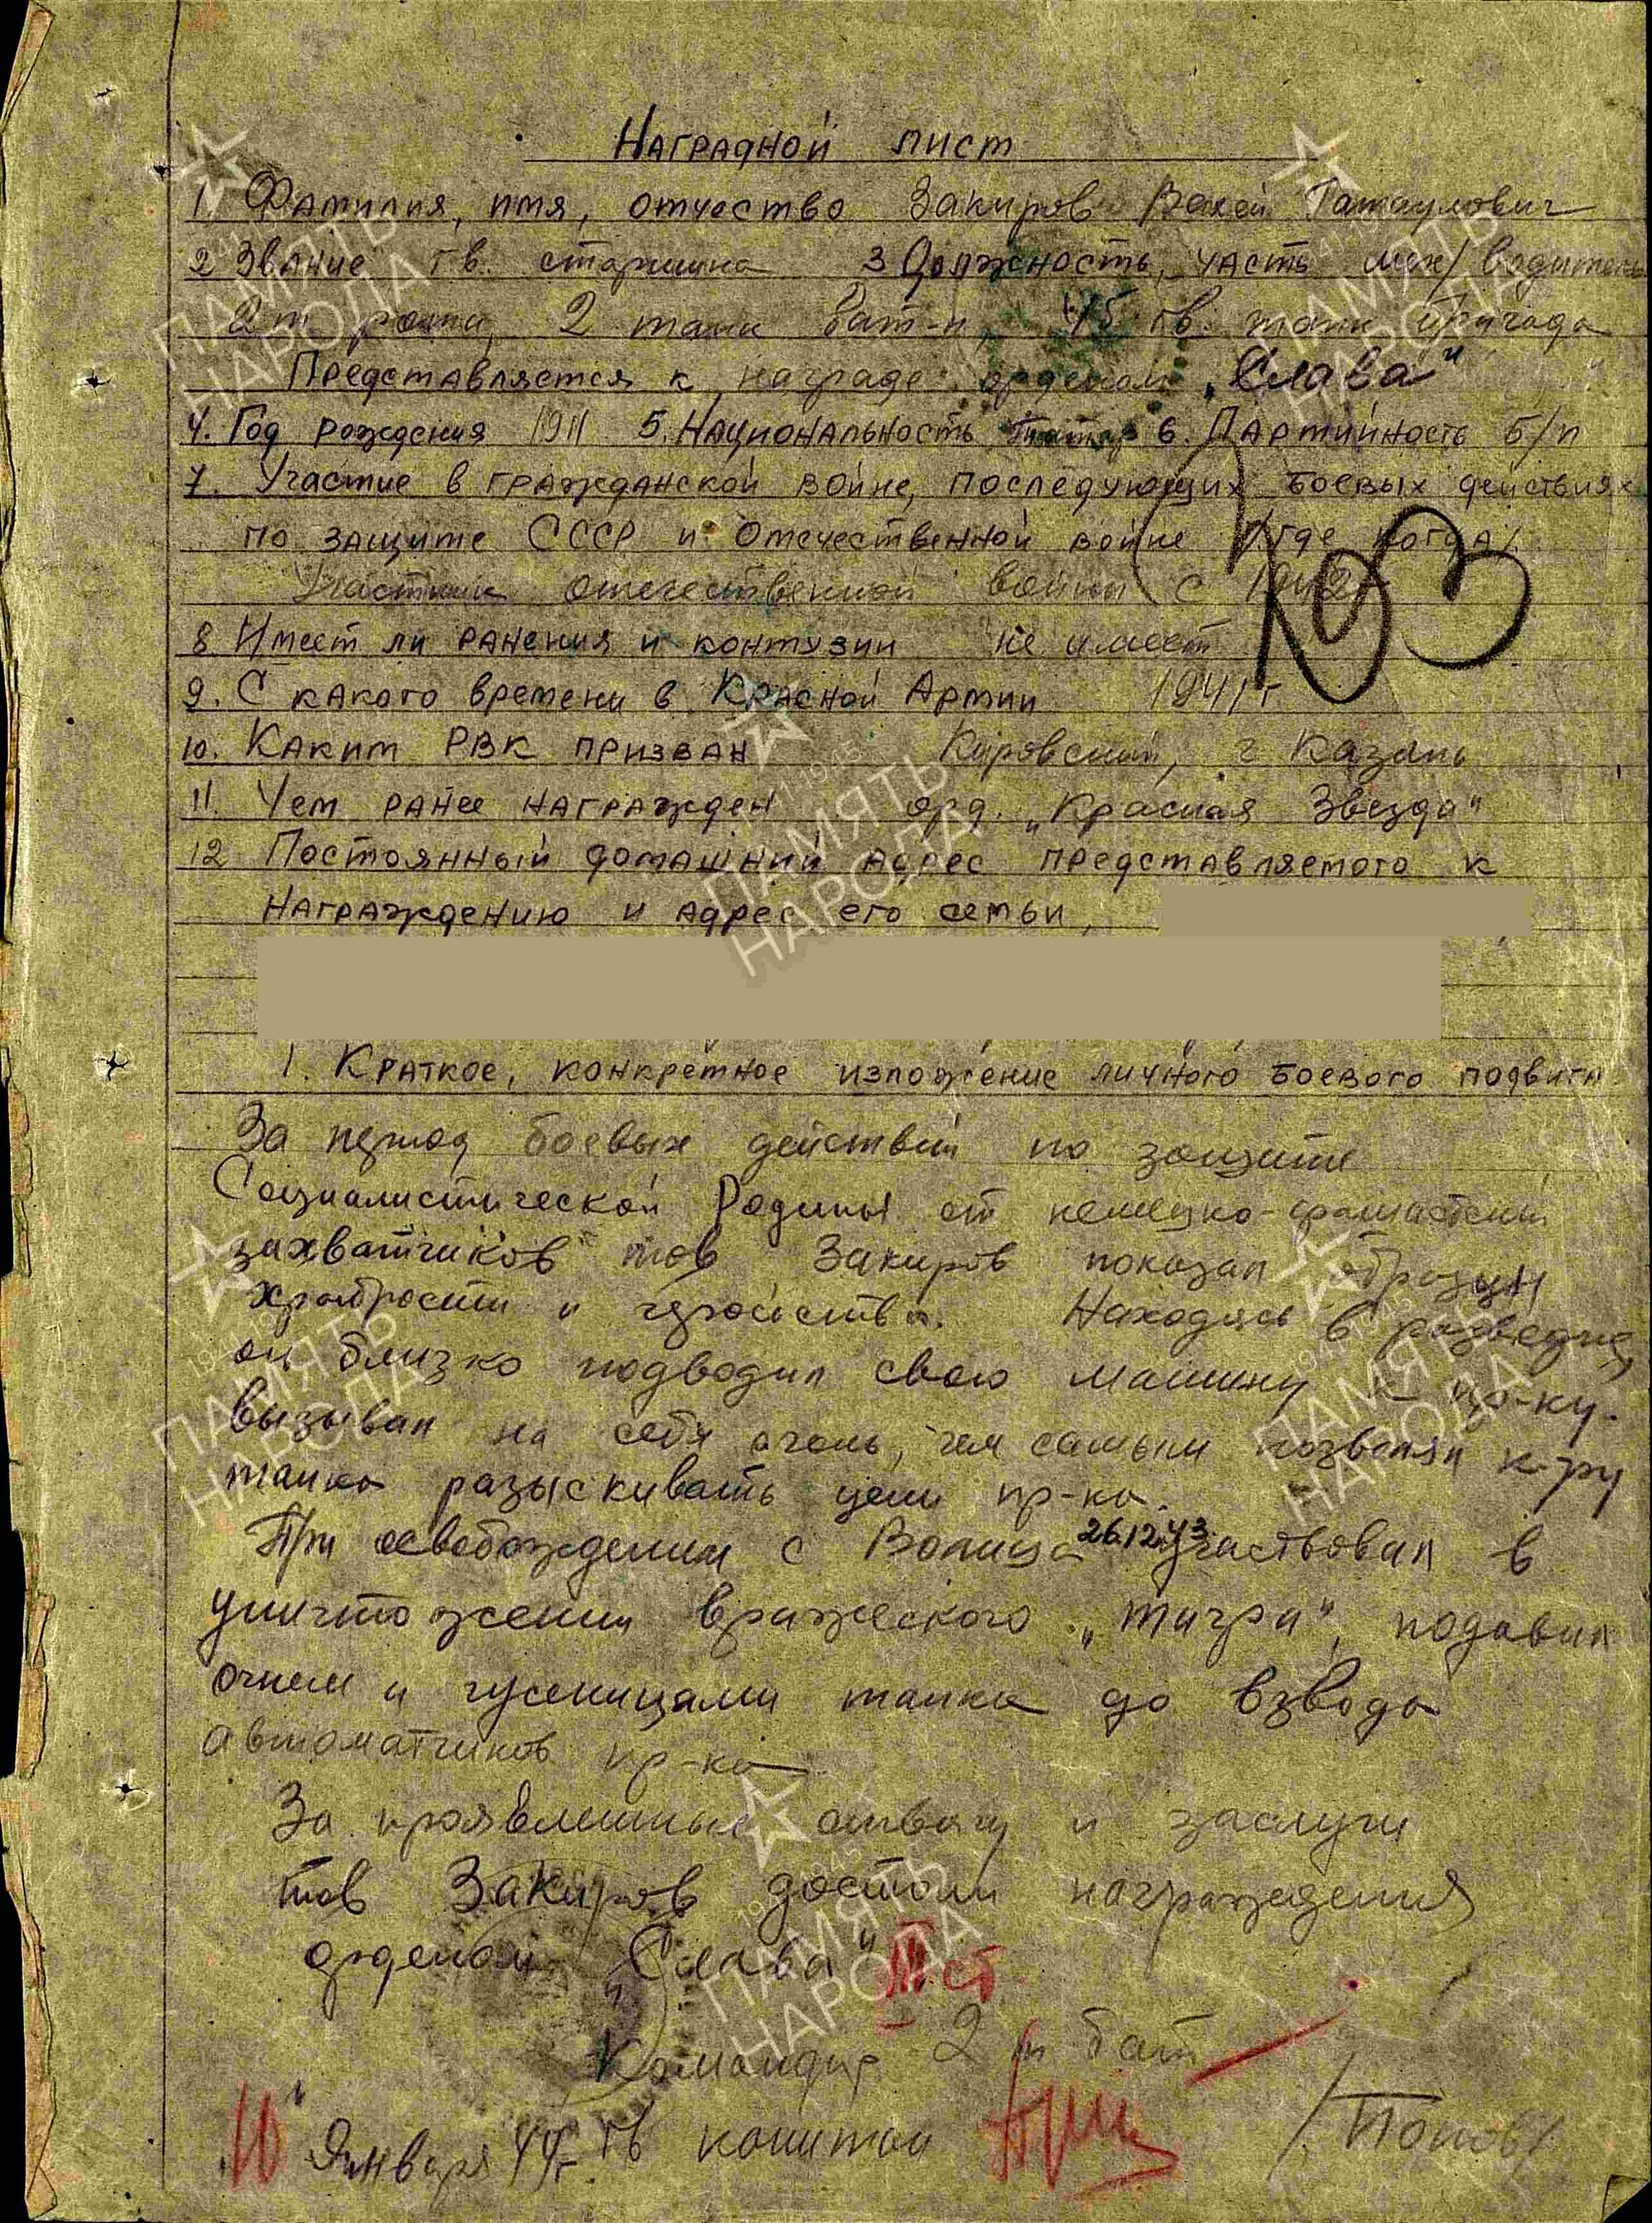 Наградной лист
1. Фамилия, имя, отчество Закиров Вакей Гатаулович
2 Звание гв. старшина 3 Должность, часть мех/водитель
2 т роты, 2 танк бат-н, 45 гв. танк бригада
Представляется к награде орденом „Слава"
4. Год рождения 1911 5. Национальность татар 6. Партийность б/п
7. Участие в гражданской войне, последующих боевых действиях
по защите СССР и Отечественной войне /где когда/
Участник отечественной войны с 1942
8 Имеет ли ранения и контузии не имеет
9. С какого времени в Красной Армии 1941 г
10. Каким РВК призван Кировский, г Казань
11. Чем ранее награжден орд. „Красная Звезда"
12 Постоянный домашний адрес представляемого к
награждению и адрес его семьи,
1. Краткое, конкретное изложение личного боевого подвига
За период боевых действий по защите
Социалистической Родины от немецко-фашистских
захватчиков тов Закиров показал образцы
храбрости и геройства. Находясь в разведке,
он близко подводил свою машину к пр-ку.
вызывал на себя огонь, тем самым позволял к-ру
танка разыскивать цели пр-ка.
При освобождении с Волица 26.12.43 участвовал в
уничтожении вражеского „тигра", подавил
огнем и гусеницами танка до взвода
автоматчиков пр-ка
За проявленные отвагу и заслуги
тов Закиров достоин награждения
орденом „Слава" III ст
Командир 2 т бат
„10" Января 44 г. гв капитан /Попов/
ПАМЯТЬ НАРОДА
1941-1945